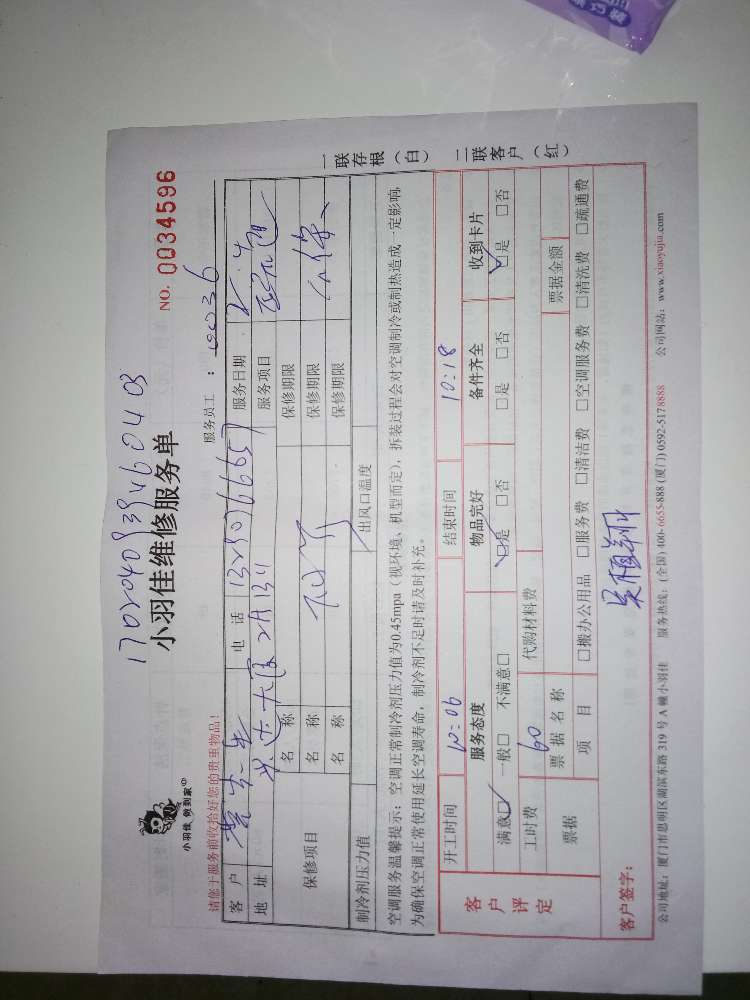 1702040939460403
小羽佳维修服务单
NO. 0034596
小羽佳 做到家
请您于服务前收拾好您的贵重物品!
服务员工:
客户 电话 服务日期
地址 大厦 2A1311 服务项目
保修项目 名称 保修期限
名称 保修期限
名称 保修期限
制冷剂压力值 出风口温度
空调服务温馨提示:空调正常制冷剂压力值为0.45mpa(视环境、机型而定),拆装过程会对空调制冷或制热造成一定影响,
为确保空调正常使用延长空调寿命,制冷剂不足时请及时补充。
一联存根(白) 二联客户(红)
客户评定
开工时间 10:06 结束时间 10:18
服务态度 物品完好 备件齐全 收到卡片
满意□ 一般□ 不满意□ □是 □否 □是 □否 □是 □否
工时费 60 代购材料费
票据 票据名称 票据金额
项目 □搬办公用品 □服务费 □清洁费 □空调服务费 □清洗费 □疏通费
客户签字:
公司地址:厦门市思明区湖滨东路 319 号 A 幢小羽佳 服务热线:(全国)400-6655-888 (厦门) 0592-5178888 公司网站:www.xiaoyujia.com